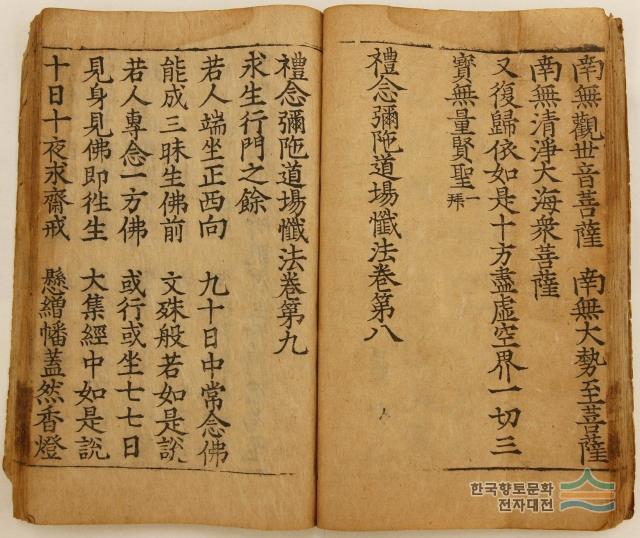 南無觀世音菩薩　南無大勢至菩薩
南無清淨大海衆菩薩
又復歸依如是十方盡虛空界一切三
寶無量賢聖一拜
禮念彌陁道場懺法卷第八
禮念彌陁道場懺法卷第九
求生行門之餘
若人端坐正西向　九十日中常念佛
能成三昧生佛前　文殊般若如是說
若人專念一方佛　或行或坐七七日
見身見佛即徃生　大集經中如是說
十日十夜求齋戒　懸繒幡蓋然香燈
한국향토문화
전자대전